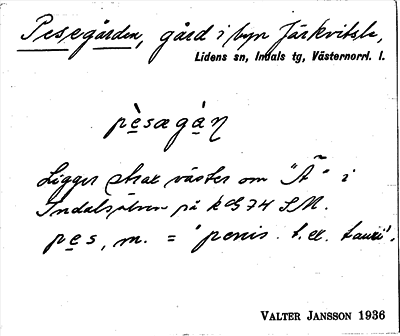 Pesegården, gård i byn Järkvitsle,
Lidens sn, Indals tg, Västernorrl. l.
pèsægàɳ
Ligger strax väster om "Å" i
Indalsälven på k bl 74 SM.
pes, m. = "penis t. ex. tauri".
VALTER JANSSON 1936